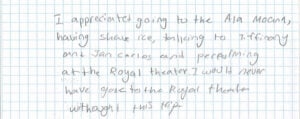 I appreciated going to the Ala Moana,
having shave ice, talking to Tiffinony
and Jan Carlos and perpolming
at the Royal theater. I would never
have gone to the Royal theater
withought this trip